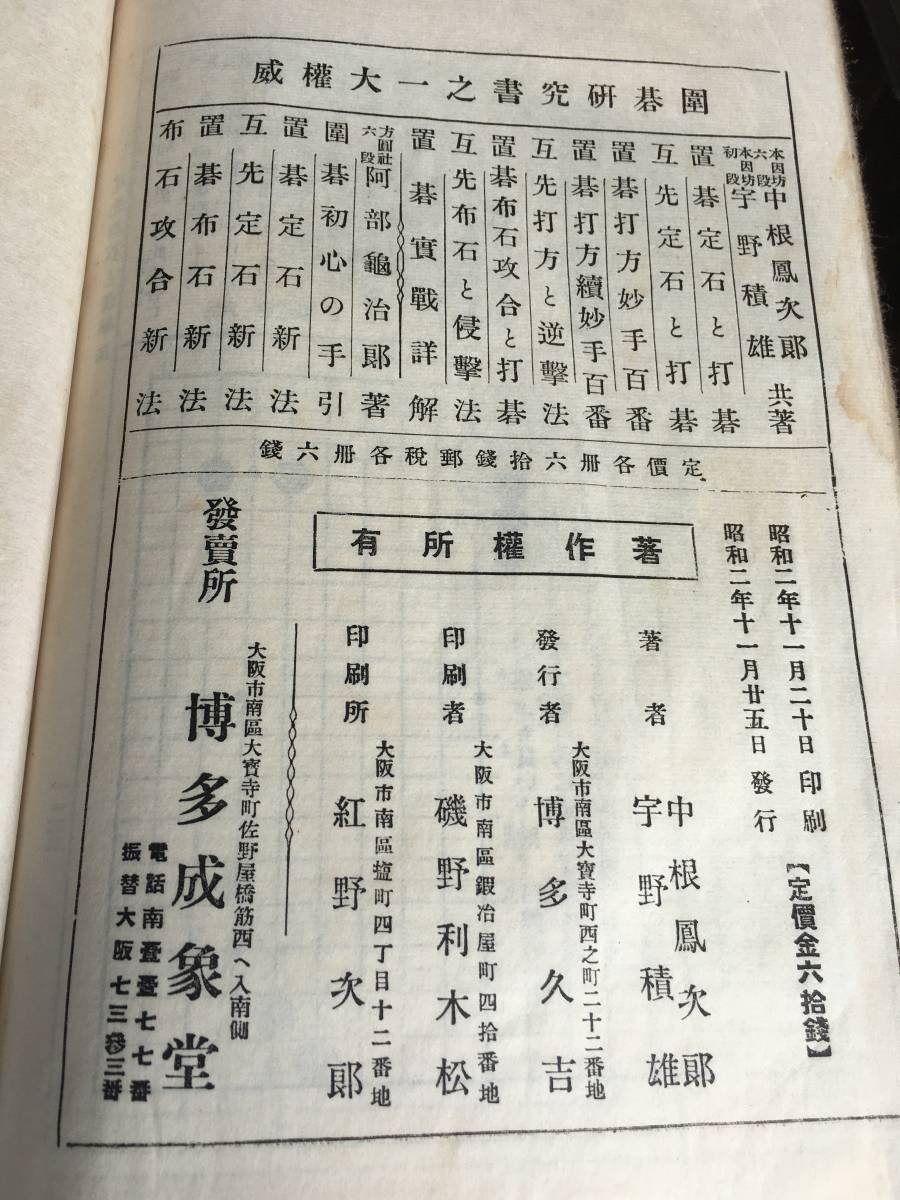 圍碁研究書之一大權威
本因坊六段 中根鳳次郎
本因坊初段 宇野積雄 共著
置碁定石と打碁
互先定石と打碁
置碁打方妙手百番
置碁打方續妙手百番
互先打方と逆擊法
置碁布石攻合と打碁
互先布石と侵擊法
置碁實戰詳解
方圓社六段 阿部龜治郎著
圍碁初心の手引
置碁定石新法
互先定石新法
置碁布石新法
布石攻合新法
定價各册六拾錢郵稅各册六錢
昭和二年十一月二十日印刷
昭和二年十一月廿五日發行
【定價金六拾錢】
著作權所有
著者 中根鳳次郎
宇野積雄
大阪市南區大寶寺町西之町二十二番地
發行者 博多久吉
大阪市南區鍛冶屋町四拾番地
印刷者 磯野利木松
大阪市南區塩町四丁目十二番地
印刷所 紅野次郎
發賣所
大阪市南區大寶寺町佐野屋橋筋西へ入南側
博多成象堂
電話南壹壹七七番
振替大阪七三參三番